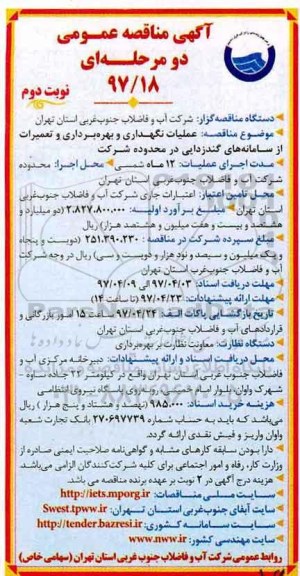 آگهی مناقصه عمومی
دو مرحله‌ای
۹۷/۱۸
نوبت دوم
دستگاه مناقصه‌گزار: شرکت آب و فاضلاب جنوب‌غربی استان تهران
موضوع مناقصه: عملیات نگهداری و بهره‌برداری و تعمیرات
از سامانه‌های گندزدایی در محدوده شرکت
مدت اجرای عملیات: ۱۲ ماه شمسی محل اجرا: محدوده
شرکت آب و فاضلاب جنوب‌غربی استان تهران
محل تامین اعتبار: اعتبارات جاری شرکت آب و فاضلاب جنوب‌غربی
استان تهران مبلغ برآورد اولیه: ۲.۸۲۷.۸۰۰.۰۰۰ (دو میلیارد و
هشتصد و بیست و هفت میلیون و هشتصد هزار) ریال
مبلغ سپرده شرکت در مناقصه: ۲۵۱.۳۹۰.۲۳۰ (دویست و پنجاه
و یک میلیون و سیصد و نود هزار و دویست و سی) ریال در وجه شرکت
آب و فاضلاب جنوب‌غربی استان تهران
مهلت دریافت اسناد: ۹۷/۰۴/۰۳ الی ۹۷/۰۴/۰۹
مهلت ارائه پیشنهادات: ۹۷/۰۴/۲۳ (تا ساعت ۱۴)
تاریخ بازگشایی پاکات الف: ۹۷/۰۴/۲۴ ساعت ۱۵ امور بازرگانی و
قراردادهای آب و فاضلاب جنوب‌غربی استان تهران
دستگاه نظارت: معاونت نظارت بر بهره‌برداری
محل دریافت اسناد و ارائه پیشنهادات: دبیرخانه مرکزی آب و
فاضلاب جنوب غربی استان تهران واقع در کیلومتر جاده ساوه -
شهرک واوان بلوار امام خمینی روبروی پاسگاه نیروی انتظامی
هزینه خرید اسناد: ۹۸۵.۰۰۰ (نهصد و هشتاد و پنج هزار) ریال
می‌باشد که باید به حساب شماره ۲۷۰۶۹۷۷۳۹ بانک تجارت شعبه
واوان واریز و فیش نقدی ارائه گردد.
دارا بودن سابقه کارهای مشابه و گواهی‌نامه صلاحیت ایمنی صادره از
وزارت کار، رفاه و امور اجتماعی برای کلیه شرکت‌کنندگان الزامی می‌باشد.
هزینه درج آگهی در ۲ نوبت بر عهده برنده مناقصه می باشد.
سایت ملی مناقصات: http://iets.mporg.ir
سایت آبفای جنوب‌غربی استان تهران: Swest.tpww.ir
سایت سامانه کشوری: http://tender.bazresi.ir
سایت مهندسی کشور: www.nww.ir
روابط عمومی شرکت آب و فاضلاب جنوب غربی استان تهران (سهامی خاص)